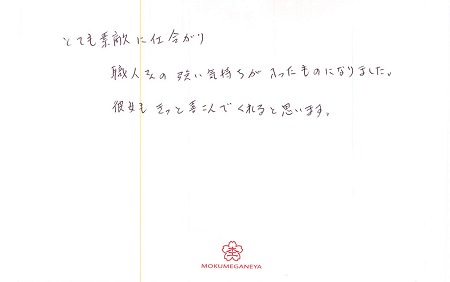 とても素敵に仕上がり
職人さんの強い気持ちが入ったものになりました。
彼女もきっと喜んでくれると思います。
MOKUMEGANEYA